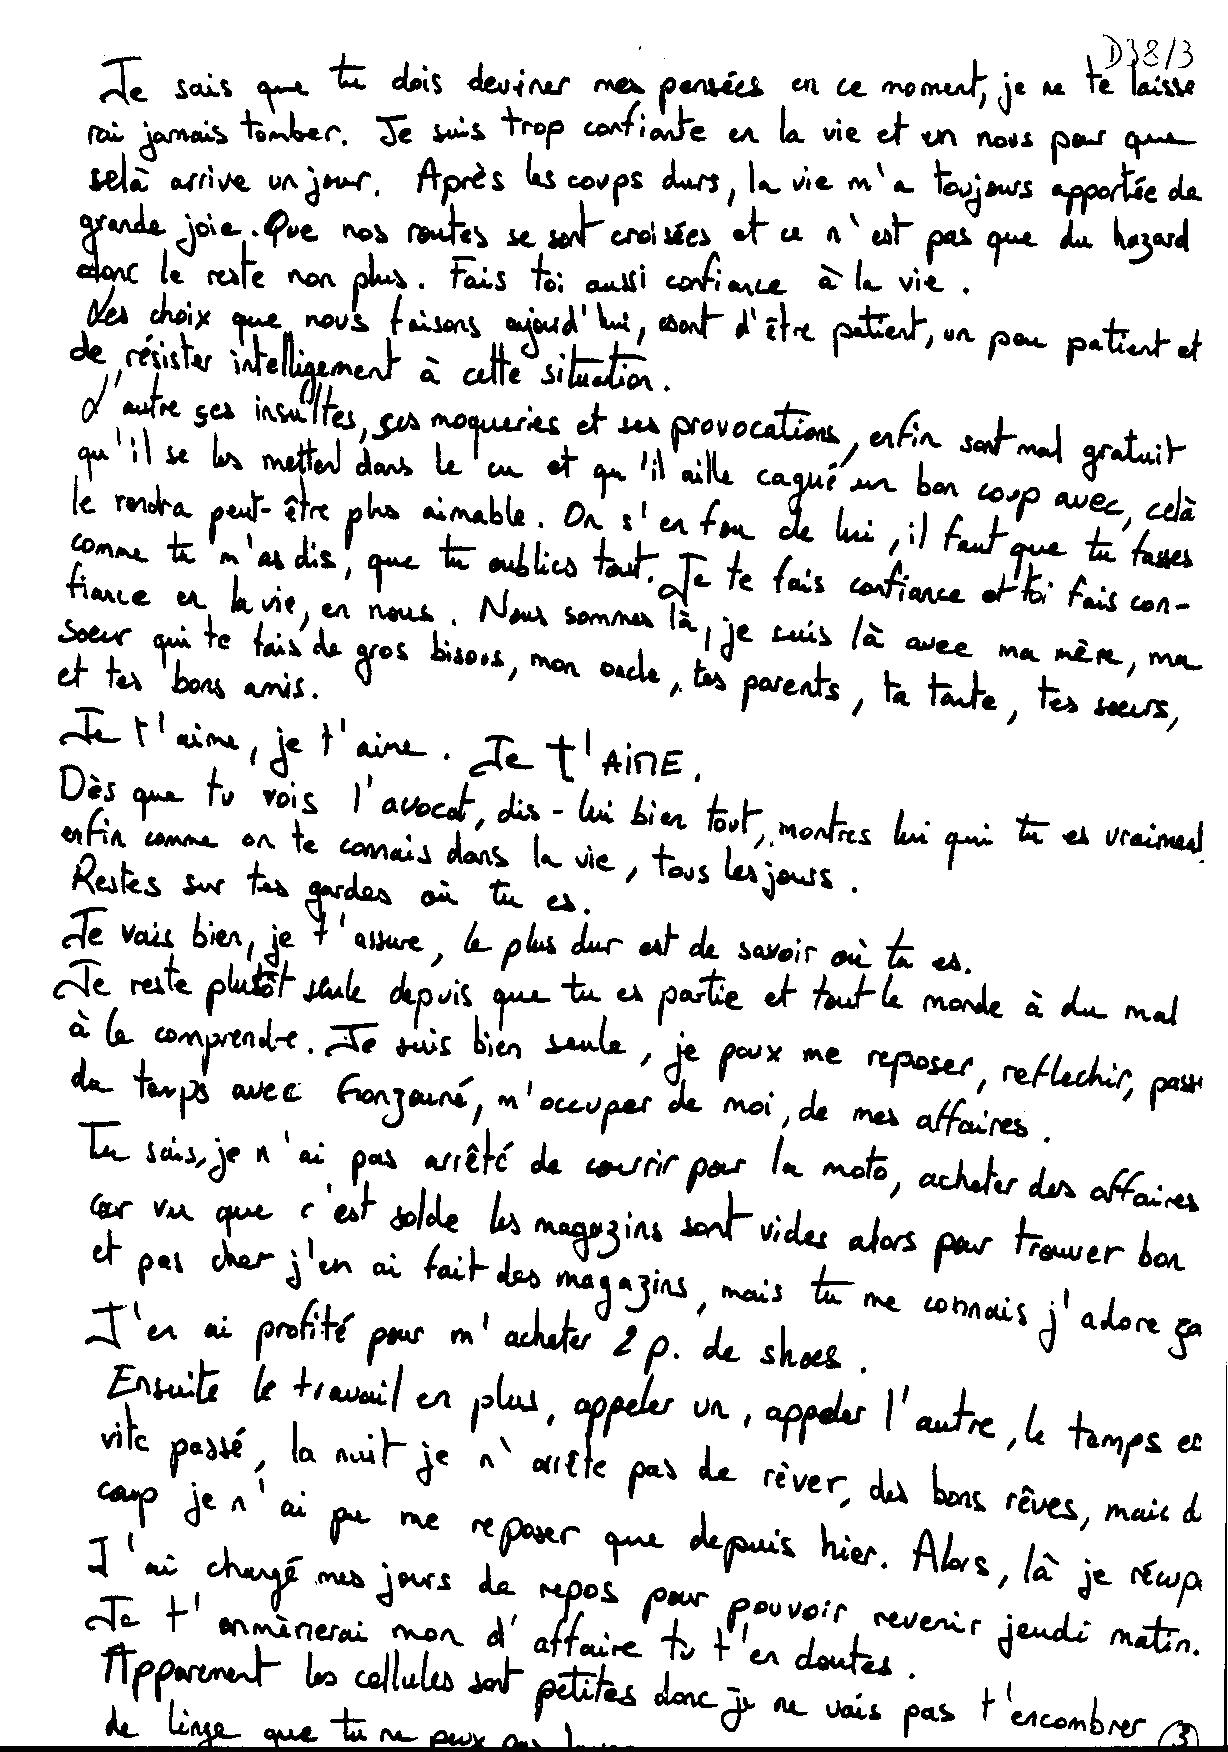 D38/3
Je sais que tu dois deviner mes pensées en ce moment, je ne te laisse
rai jamais tomber. Je suis trop confiante en la vie et en nous pour que
selà arrive un jour. Après les coups durs, la vie m'a toujours apportée de
grande joie. Que nos routes se sont croisées et ce n'est pas que du hazard
donc le reste non plus. Fais toi aussi confiance à la vie.
Les choix que nous faisons aujourd'hui, sont d'être patient, un peu patient et
de résister intelligement à cette situation.
L'autre ses insultes, ses moqueries et ses provocations, enfin sont mal gratuit
qu'il se les mettent dans le cu et qu'il aille cagué un bon coup avec, celà
le rendra peut-être plus aimable. On s'en fou de lui, il faut que tu fasses
comme tu m'as dis, que tu oublies tout. Je te fais confiance et toi fais con-
fiance en la vie, en nous. Nous sommes là, je suis là avec ma mère, ma
soeur qui te fais de gros bisous, mon oncle, tes parents, ta tante, tes soeurs,
et tes bons amis.
Je t'aime, je t'aime. Je t'AIME.
Dès que tu vois l'avocat, dis-lui bien tout, montres lui qui tu es vraiment
enfin comme on te connais dans la vie, tous les jours.
Restes sur tes gardes où tu es.
Je vais bien, je t'assure, le plus dur est de savoir où tu es.
Je reste plutôt seule depuis que tu es partie et tout le monde à du mal
à le comprendre. Je suis bien seule, je peux me reposer, reflechir, passe
du temps avec Gonzouné, m'occuper de moi, de mes affaires.
Tu sais, je n'ai pas arrêté de courrir pour la moto, acheter des affaires
car vu que c'est solde les magazins sont vides alors pour trouver bon
et pas cher j'en ai fait des magazins, mais tu me connais j'adore ça
J'en ai profité pour m'acheter 2 p. de shoes.
Ensuite le travail en plus, appeler un, appeler l'autre, le temps es
vite passé, la nuit je n'arrête pas de rêver, des bons rêves, mais d
coup je n'ai pu me reposer que depuis hier. Alors, là je récup
J'ai changé mes jours de repos pour pouvoir revenir jeudi matin.
Je t'emmènerai mon d'affaire tu t'en doutes.
Apparement les cellules sont petites donc je ne vais pas t'encombrer
de linge que tu ne peux pas
3